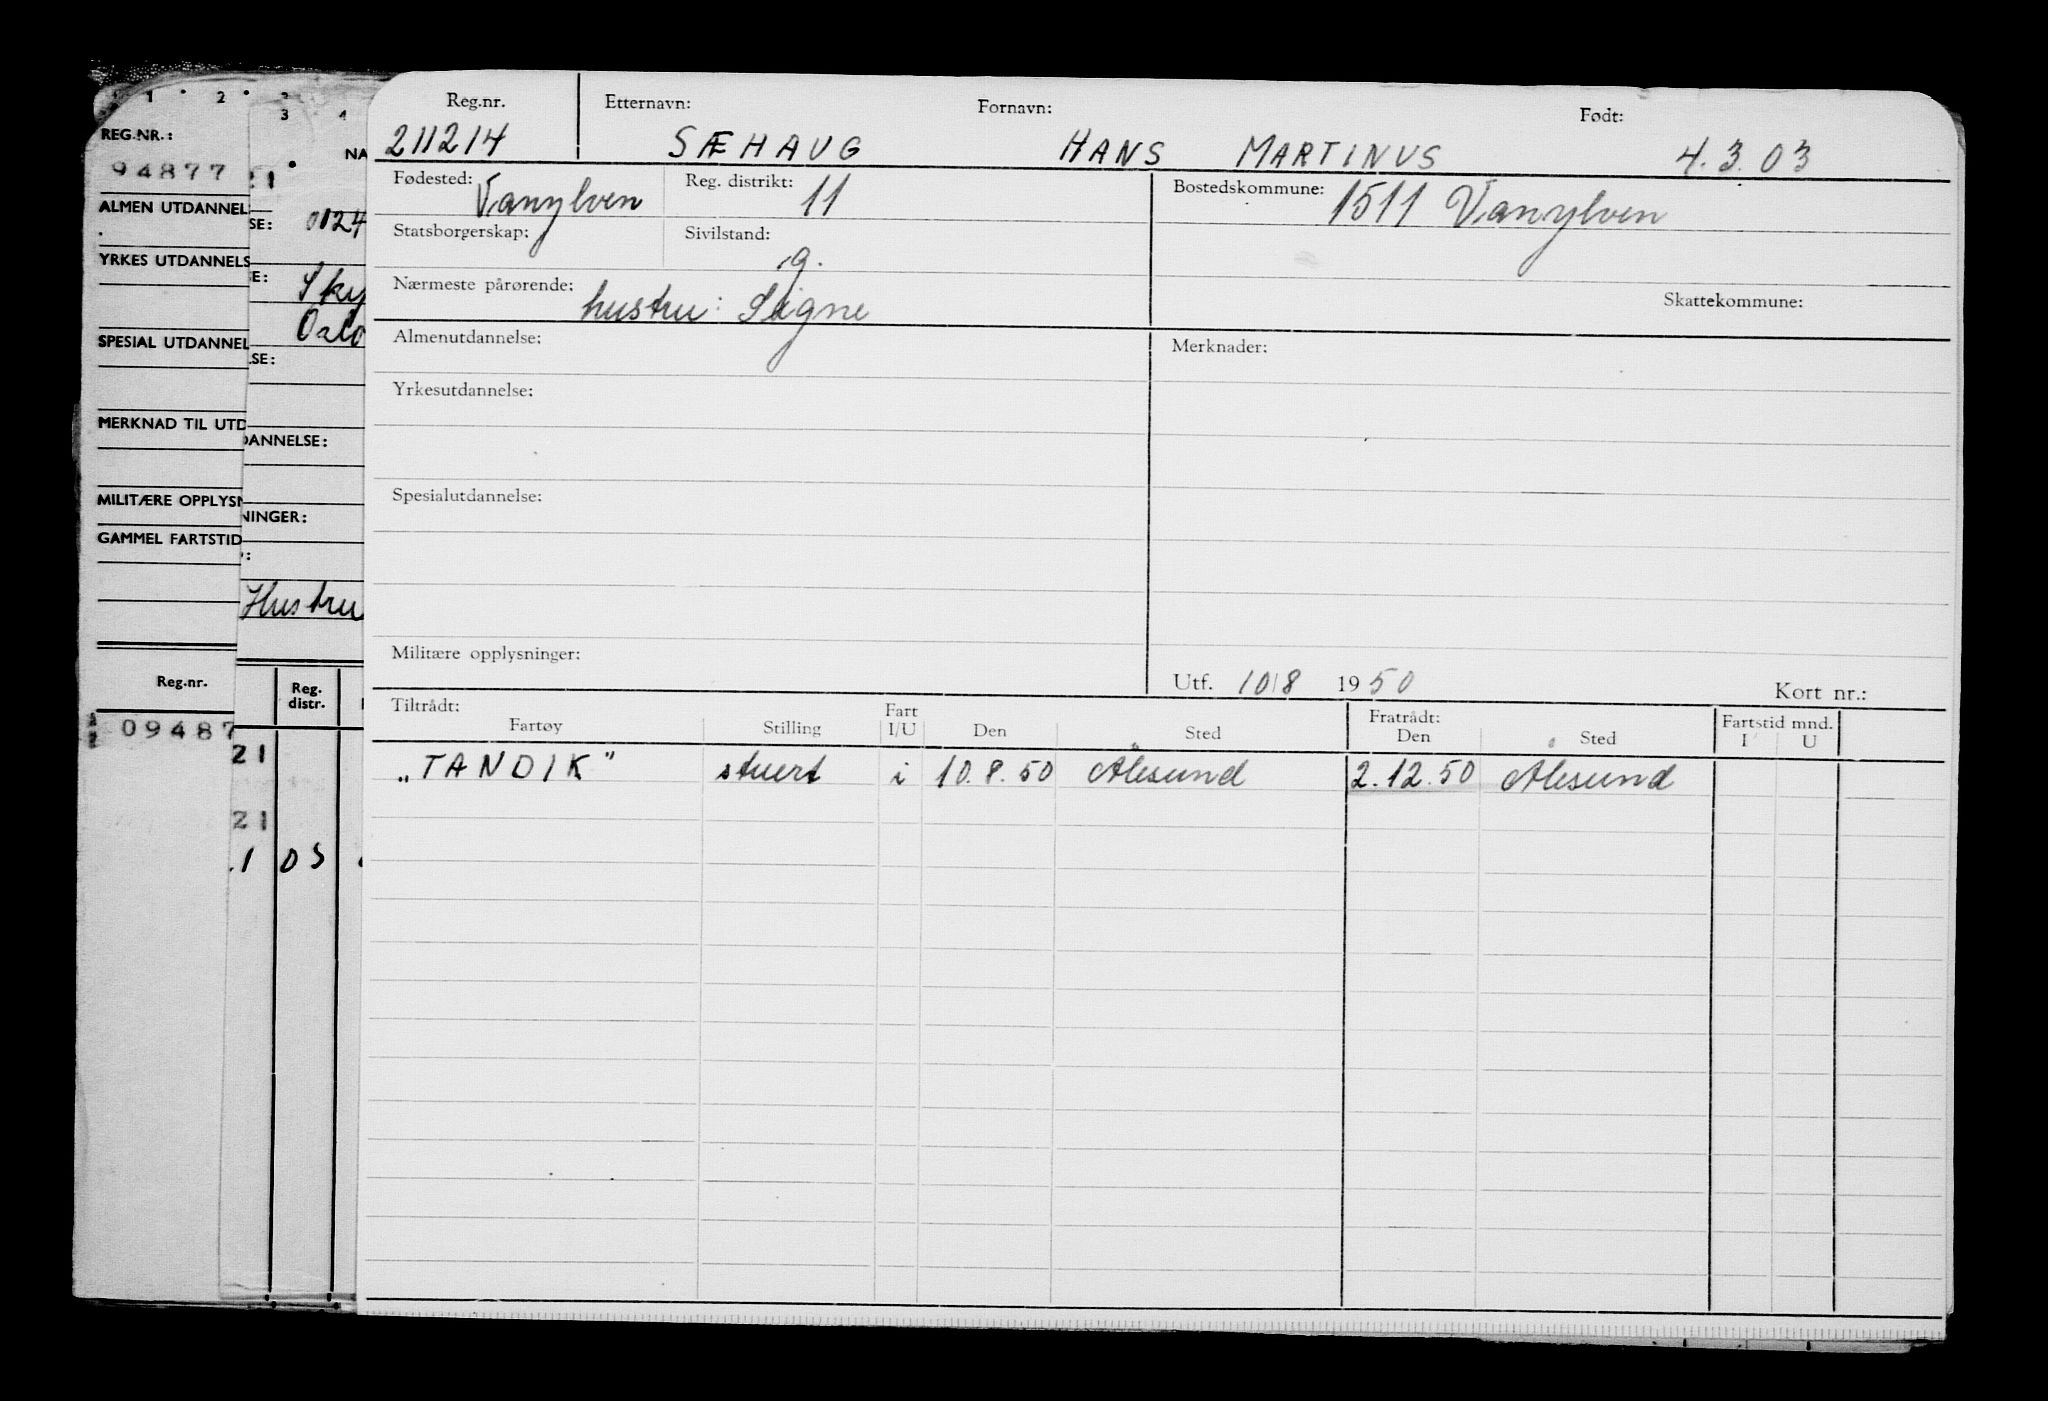 1 2 3
REG.NR.:
94877
ALMEN UTDANNEL
YRKES UTDANNELS
SPESIAL UTDANNEL
MERKNAD TIL UTD
MILITÆRE OPPLYSN
GAMMEL FARTSTID
Reg.nr.
09487
3 4
NA
21
SE: 0124
E: Sky
Oslo
.SE:
DANNELSE:
NINGER:
Hustru
Reg. distr.
21
21
.1 05
Reg.nr. Etternavn: Fornavn: Født:
211214 SÆHAUG HANS MARTINUS 4.3.03
Fødested: Vanylven Reg. distrikt: 11 Bostedskommune: 1511 Vanylven
Statsborgerskap: Sivilstand: g.
Nærmeste pårørende: hustru: Signe Skattekommune:
Almenutdannelse: Merknader:
Yrkesutdannelse:
Spesialutdannelse:
Militære opplysninger: Utf. 10/8 1950 Kort nr.:
Tiltrådt: Fartøy Stilling Fart I/U Den Sted Fratrådt: Den Sted Fartstid mnd. I U
„TANDIK" stuert i 10.8.50 Ålesund 2.12.50 Ålesund